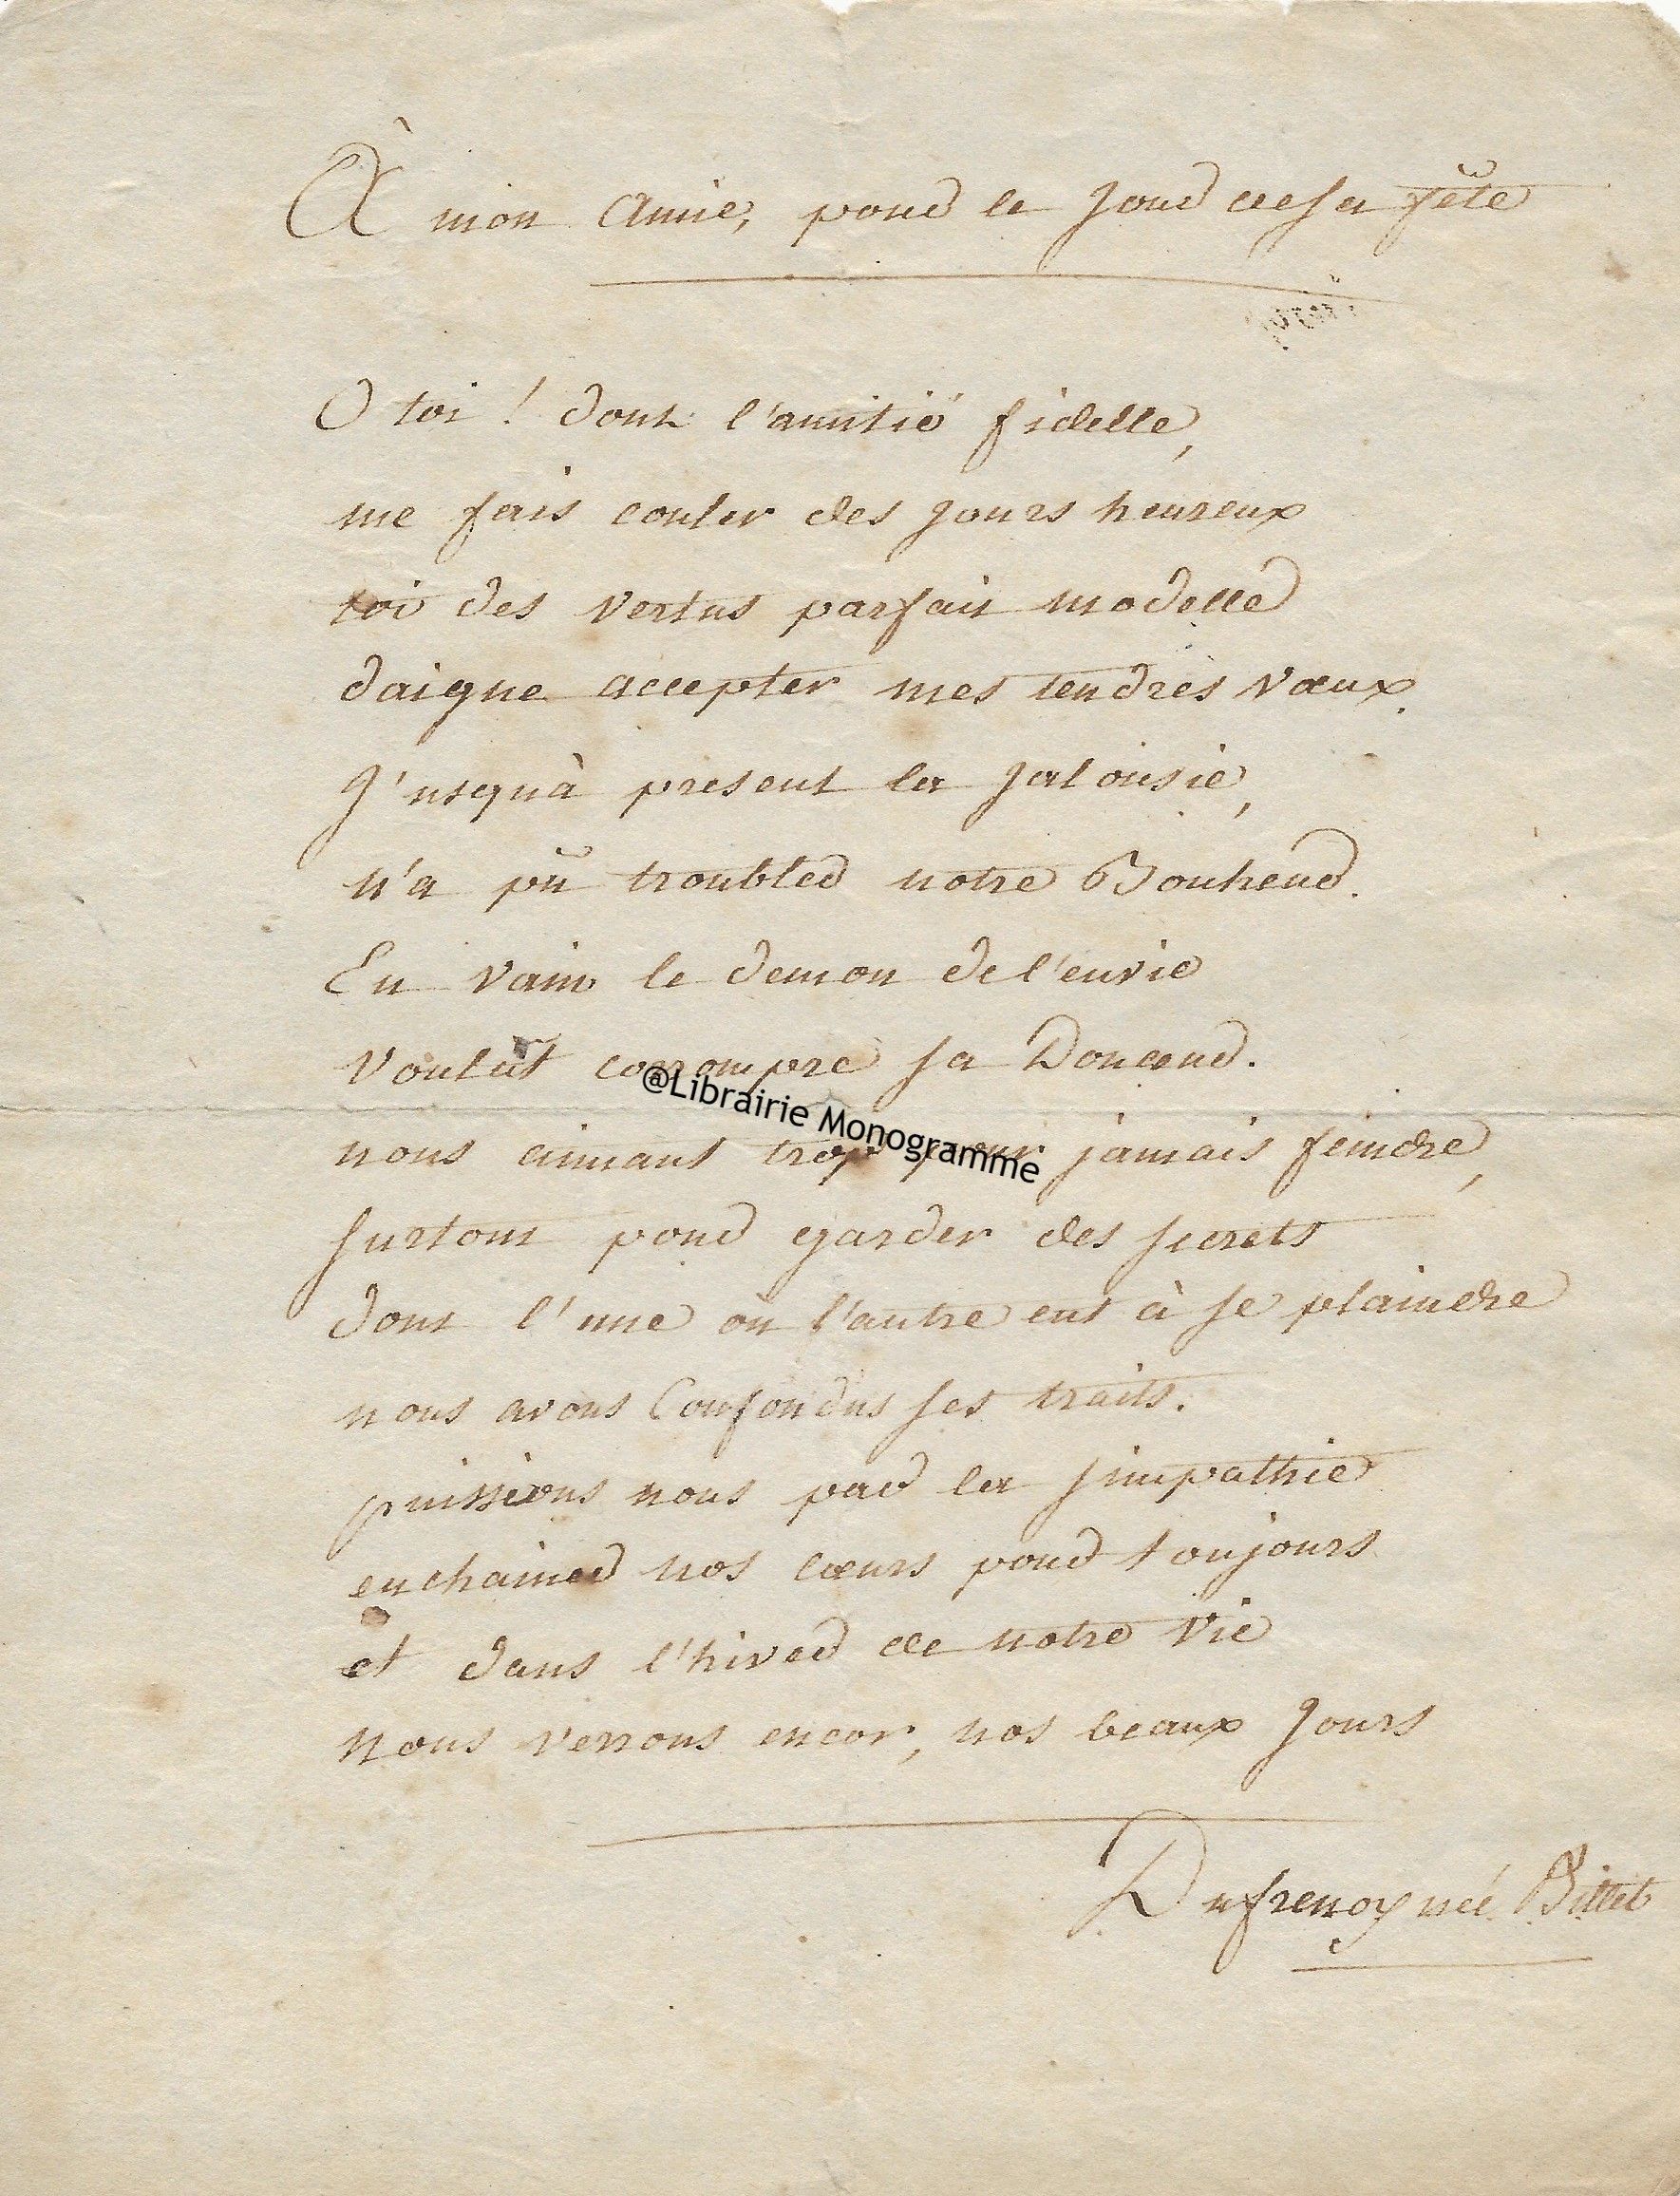 À mon amie, pour le jour de sa fête
O toi ! dont l'amitié fidelle,
me fais couler des jours heureux
toi des vertus parfait modelle
daigne accepter mes tendres vœux.
J'usqu'à present la jalousie,
n'a pû troubler notre Bonheur.
En vain le demon de l'envie
voulut corrompre sa Douceur.
@Librairie Monogramme
nous aimant trop pour jamais feindre,
surtout pour garder des secrets
dont l'une ou l'autre eut à se plaindre
nous avons Confondus ses traits.
puissions nous par la simpathie
enchainer nos cœurs pour toujours
et dans l'hiver de notre vie
nous verrons encor, nos beaux jours
Dufrenoy née Billet